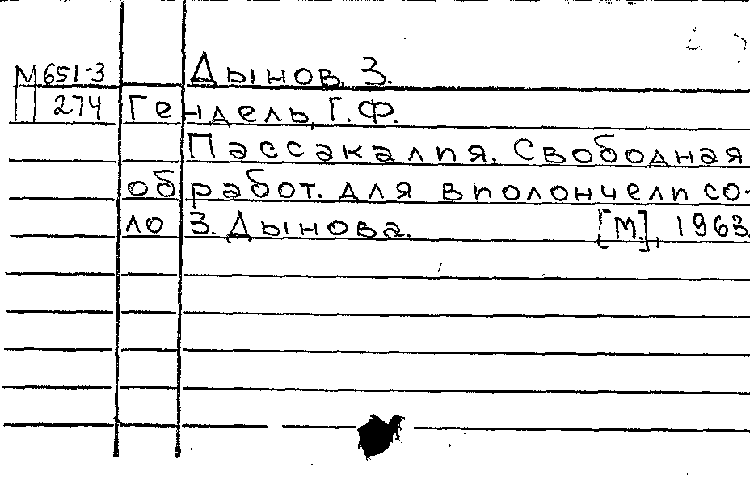 М651-3 Дынов, З.
П 274 Гендель, Г.Ф.
Пассакалия. Свободная
обработ. для виолончели со-
ло З. Дынова. [М.], 1963.